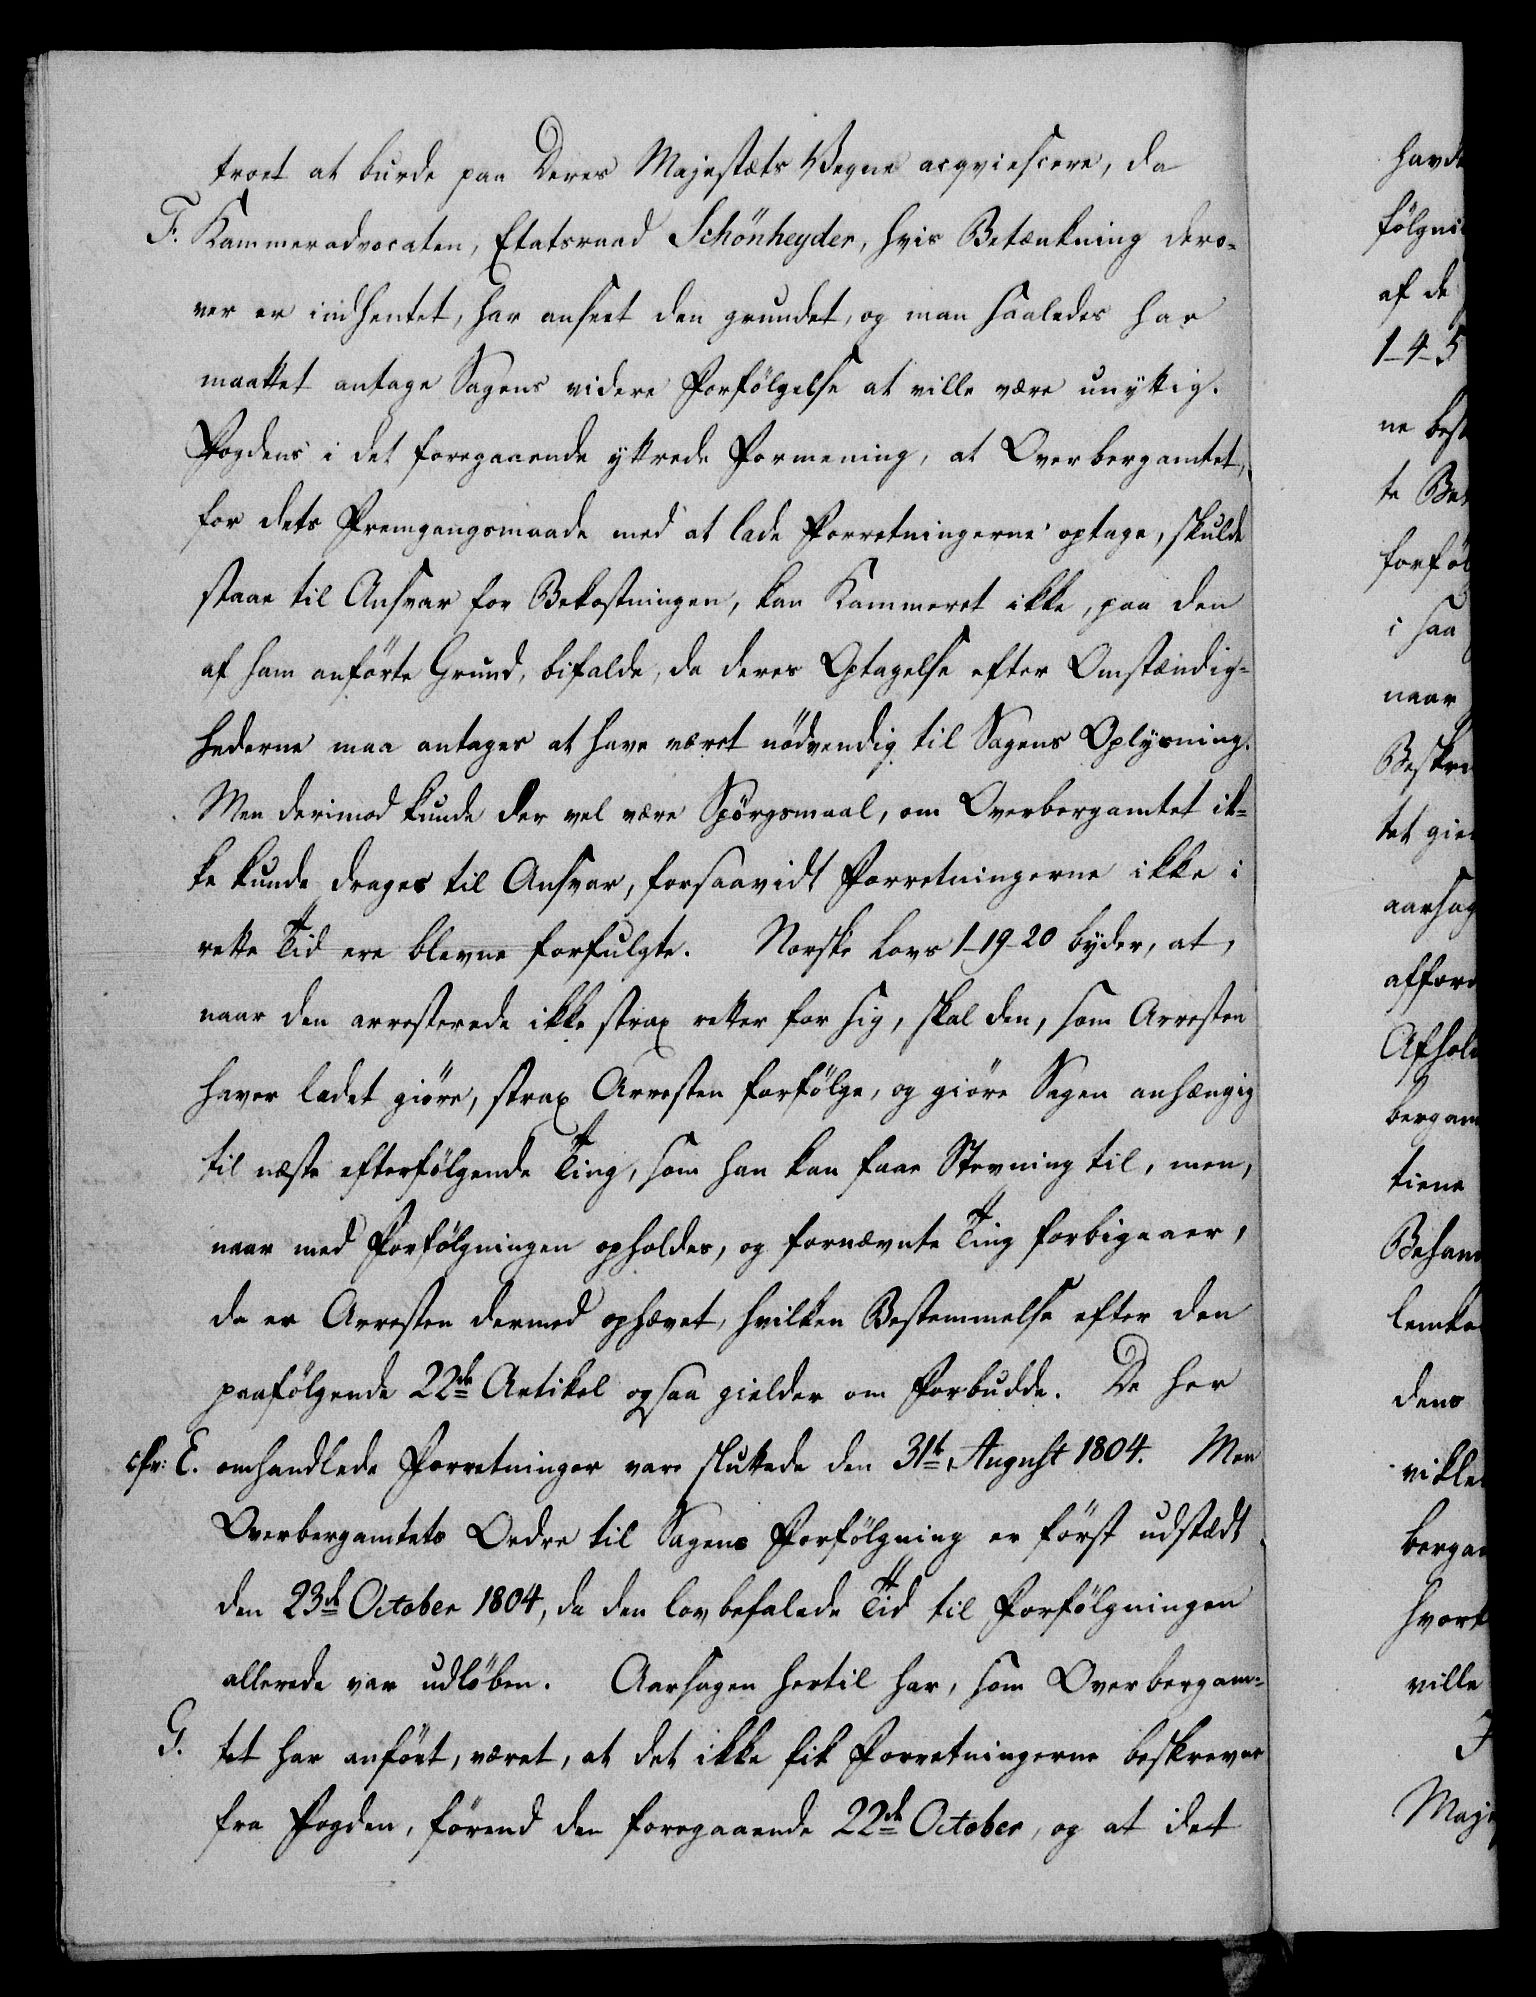 troet at burde paa Deres Majestæts Vegne acqviescere, da
F. Kammeradvocaten, Etatsraad Schönheyder, hvis Betænkning dero-
ver er indhentet, har anseet den grundet, og man saaledes har
maattet antage Sagens videre Forfölgelse at ville være unyttig.
Fogdens i det foregaaende yttrede Formening, at Overbergamtet,
for dets Fremgangsmaade med at lade Forretningerne optage, skulde
staae til Ansvar for Bekostningen, kan Kammeret ikke, paa den
af ham anförte Grund, bifalde, da deres Optagelse efter Omstændig-
hederne maa antages at have været nödvendig til Sagens Oplysning.
Men derimod kunde der vel være Spörgsmaal, om Overbergamtet ik-
ke kunde drages til Ansvar, forsaavidt Forretningerne ikke i
rette Tid ere blevne forfulgte. Norske Lovs 1-19-20 byder, at,
naar den arresterede ikke strax retter for sig, skal den, som Arresten
haver ladet giöre, strax Arresten forfölge, og giöre Sagen anhængig
til næste efterfölgende Ting, som han kan faae Stevning til, men,
naar med Forfölgningen opholdes, og fornævnte Ting forbigaaer,
da er Arresten dermed ophævet, hvilken Bestemmelse efter den
paafölgende 22de Artikel ogsaa gielder om Forbudde. De her
cfr: E. omhandlede Forretninger vare sluttede den 31t August 1804. Men
Overbergamtets Ordre til Sagens Forfölgning er först udstædt
den 23de October 1804, da den lovbefalede Tid til Forfölgningen
allerede var udlöben. Aarsagen hertil har, som Overbergam-
G. tet har anfört, været, at det ikke fik Forretningerne beskrevne
fra Fogden, förend den foregaaende 22de October, og at idet
havde
af de
1-4-5
ne
i saa
naar
tiene
dens
ville